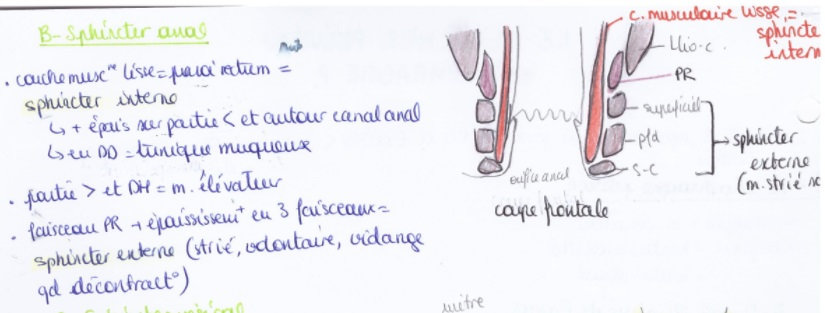 B- Sphincter anal
. couche musc^re lisse = paroi rectum =
sphincter interne
↳ + épais sur partie < et autour canal anal
↳ en DD = tunique muqueuse
. partie > et DH = m. élévateur
. faisceau PR → épaississem^t en 3 faisceaux =
sphincter externe (strié, volontaire, vidange
qd décontract°)
c. musculaire lisse =
sphincte
intern
Ilio-c.
PR
superficiel
pfd
s-c
→ sphincter
externe
(m. strié
orifice anal
coupe frontale